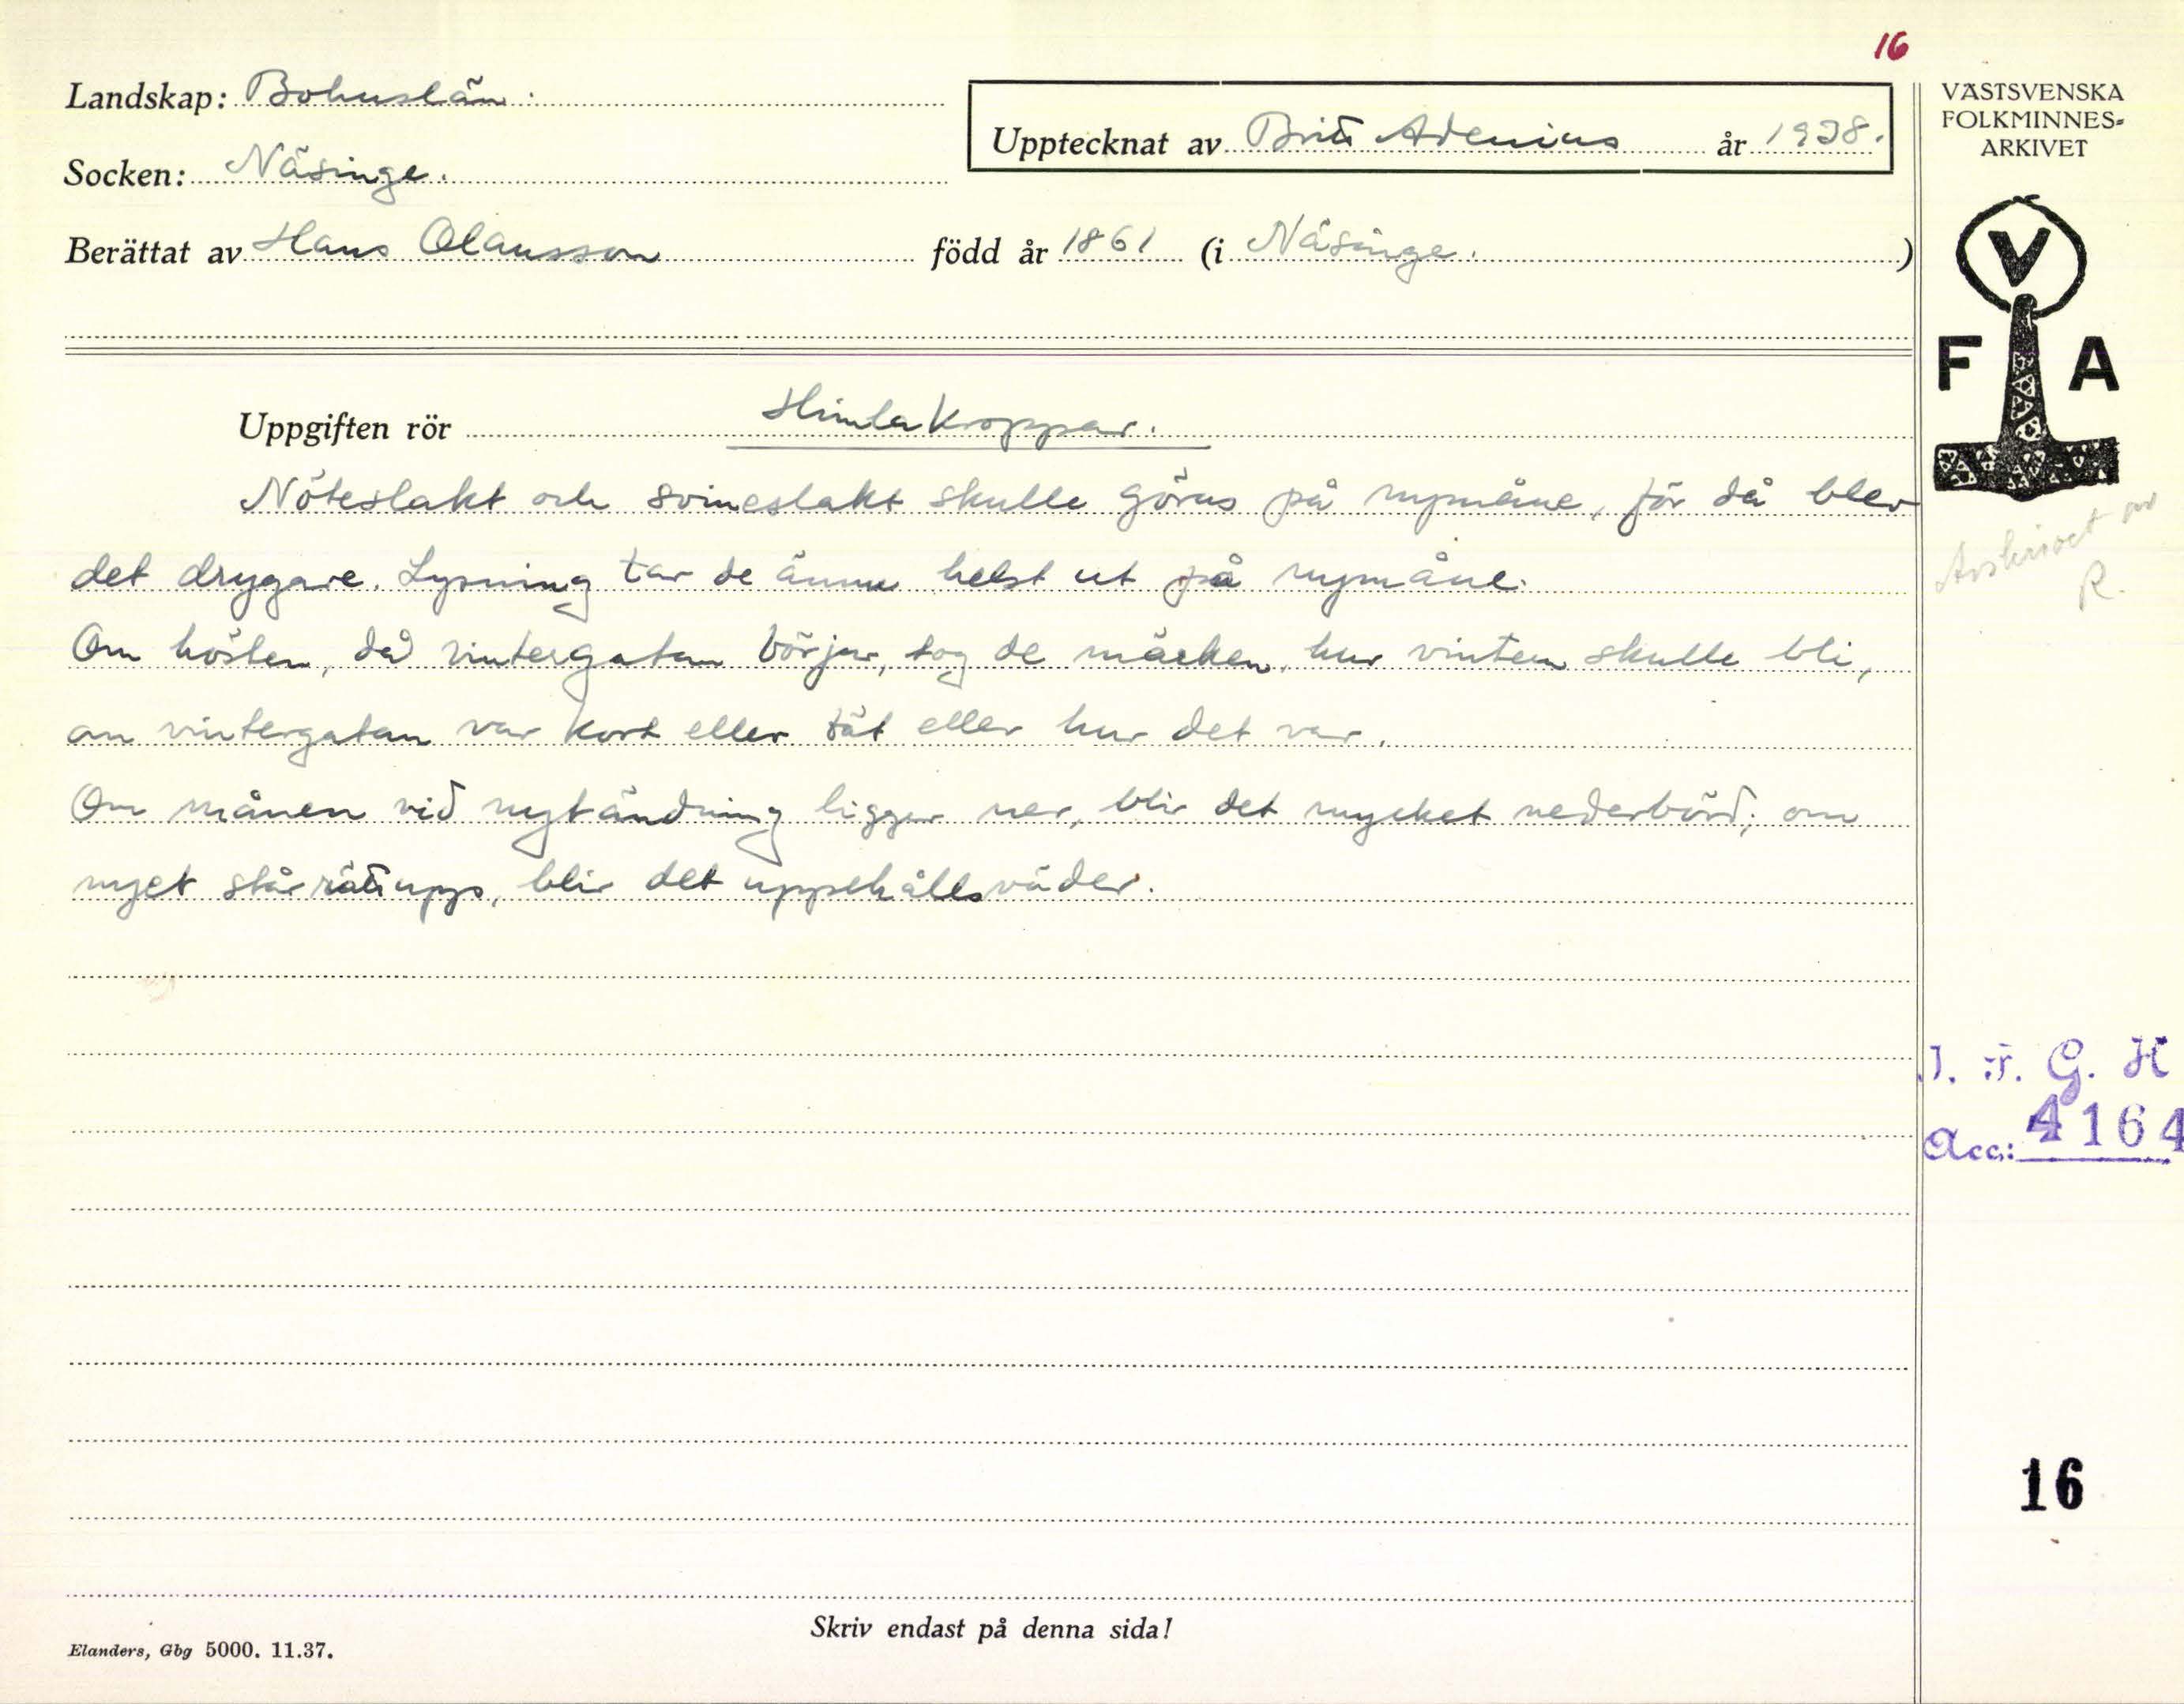 16
Landskap: Bohuslän.
Upptecknat av Britt Adenius år 1938.
Socken: Näsinge.
Berättat av Hans Olausson född år 1861 (i Näsinge.)
VÄSTSVENSKA
FOLKMINNES-
ARKIVET
V
F A
Uppgiften rör Himlakroppar.
Nöteslakt och svineslakt skulle göras på nymåne, för då blev
det drygare. Lysning tar de ännu helst ut på nymåne.
Om hösten, då vintergatan börjar, tog de märken, hur vintern skulle bli,
om vintergatan var kort eller tät eller hur det var.
Om månen vid nytändning ligger ner, blir det mycket nederbörd; om
nyet står rätt upp, blir det uppehållsväder.
Avskrivet av
R.
I. F. G. H
Acc.: 4164
16
Skriv endast på denna sida!
Elanders, Gbg 5000. 11.37.